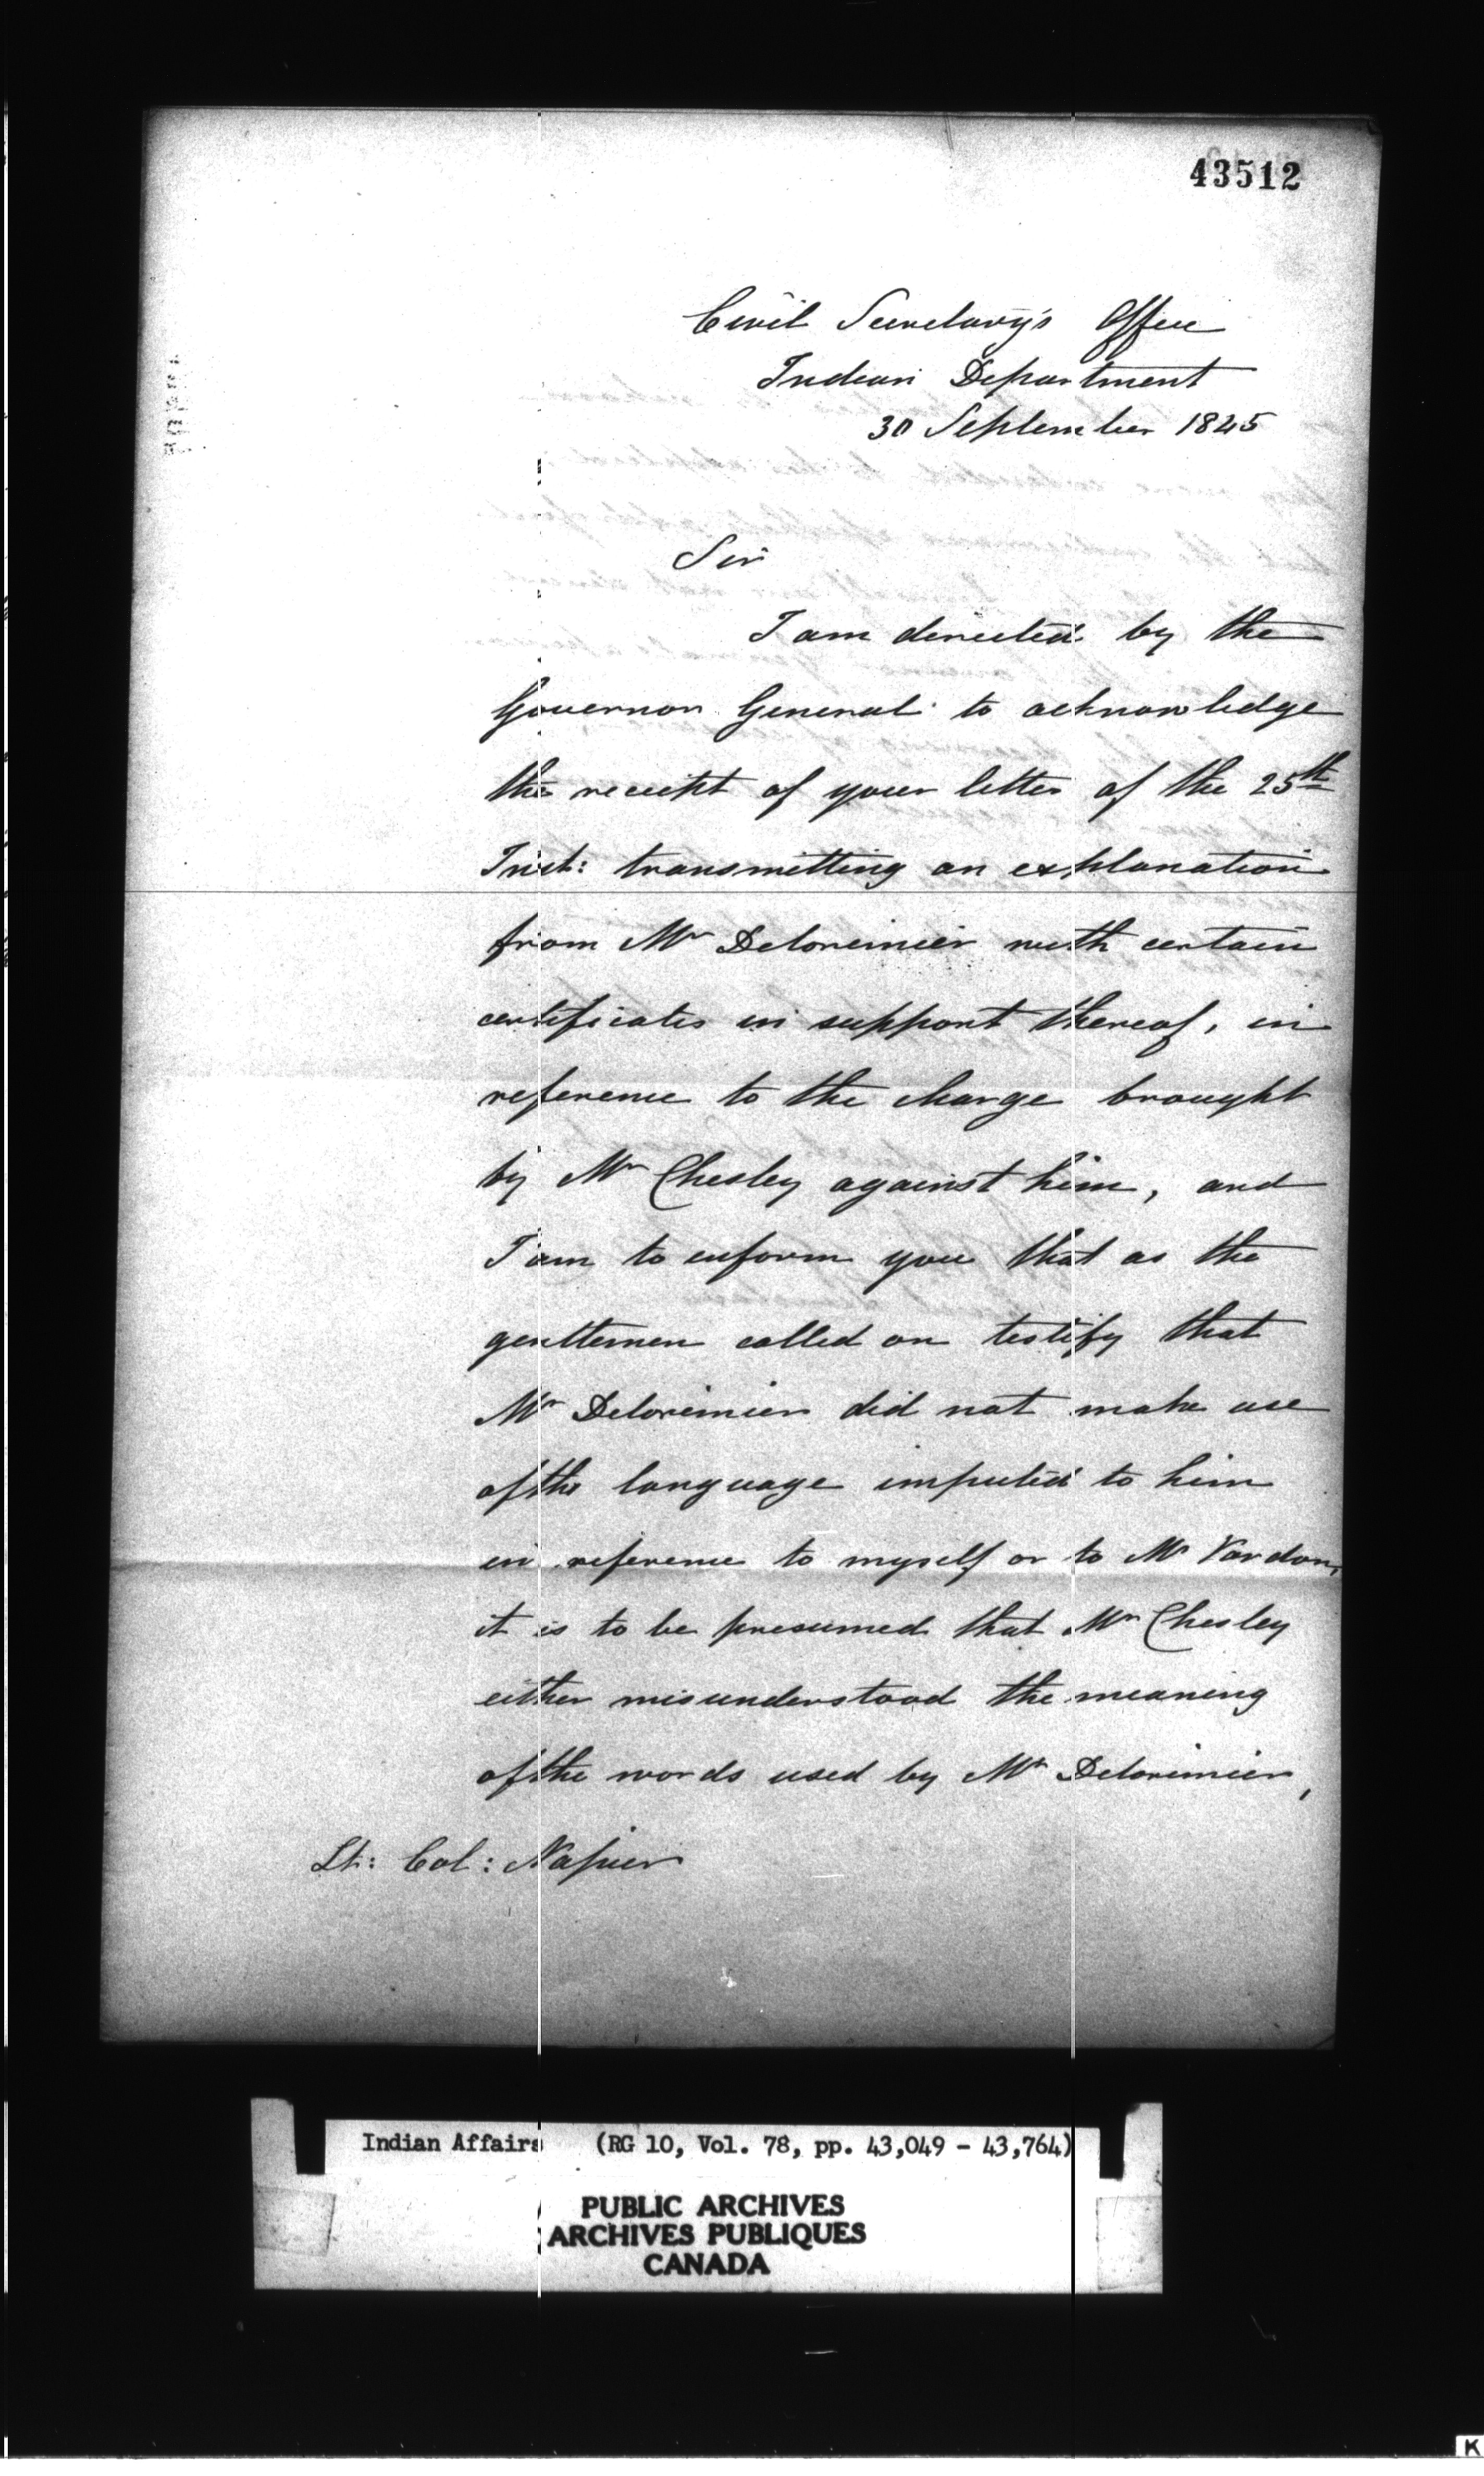 43512
Civil Secretary's Office
Indian Department
30 September 1845
Sir
I am directed by the
Governor General to acknowledge
the receipt of your letter of the 25th
Inst: transmitting an explanation
from Mr Delorimier with certain
certificates in support thereof, in
reference to the charge brought
by Mr Chesley against him, and
I am to inform you that as the
gentlemen called on testify that
Mr Delorimier did not make use
of the language imputed to him
in reference to myself or to Mr Vardon,
it is to be presumed that Mr Chesley
either misunderstood the meaning
of the words used by Mr Delorimier,
Lt: Col: Napier
Indian Affairs (RG 10, Vol. 78, pp. 43,049 - 43,764)
PUBLIC ARCHIVES
ARCHIVES PUBLIQUES
CANADA
K